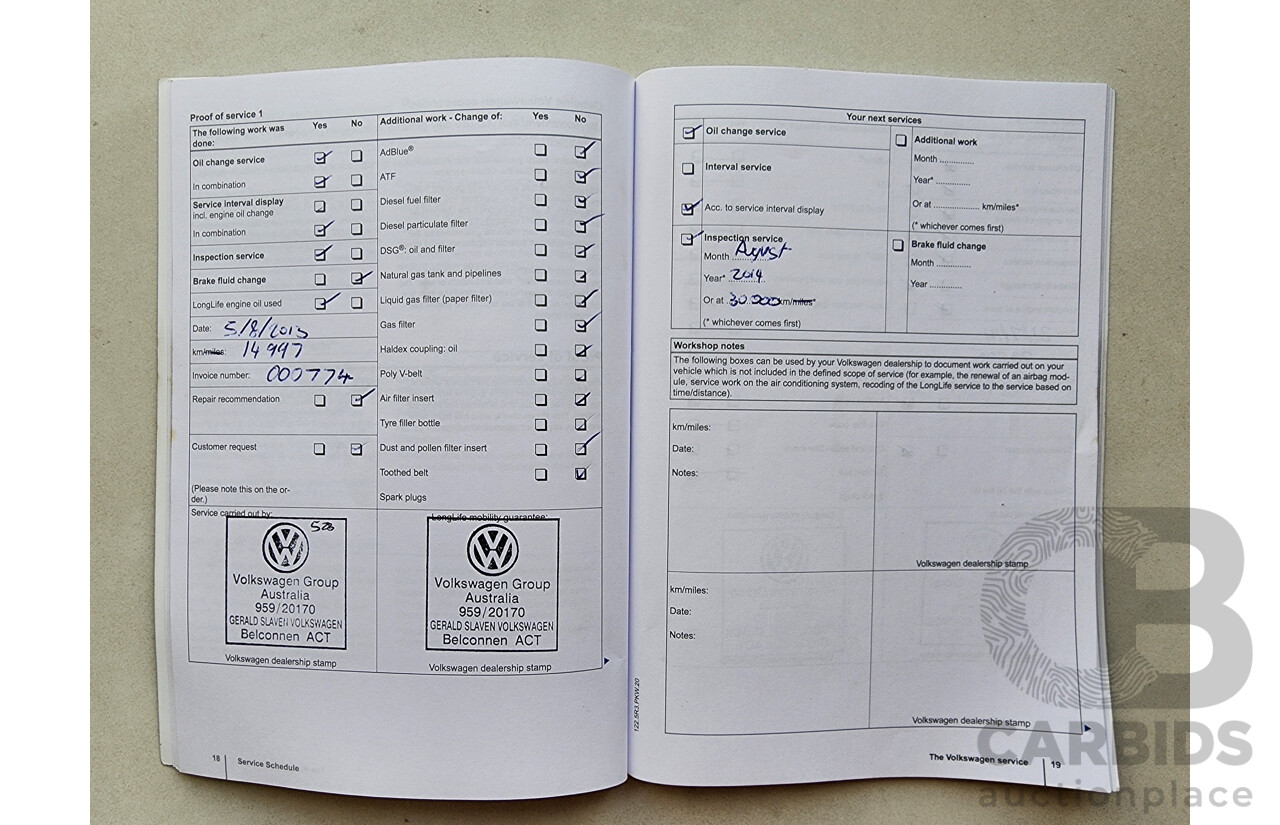 Proof of service 1
The following work was done: Yes No
Oil change service
In combination
Service interval display
incl. engine oil change
In combination
Inspection service
Brake fluid change
LongLife engine oil used
Date: 5/8/2013
km/miles: 14997
Invoice number: 000774
Repair recommendation
Customer request
(Please note this on the or-
der.)
Additional work - Change of: Yes No
AdBlue®
ATF
Diesel fuel filter
Diesel particulate filter
DSG®: oil and filter
Natural gas tank and pipelines
Liquid gas filter (paper filter)
Gas filter
Haldex coupling: oil
Poly V-belt
Air filter insert
Tyre filler bottle
Dust and pollen filter insert
Toothed belt
Spark plugs
Service carried out by:
Volkswagen Group
Australia
959/20170
GERALD SLAVEN VOLKSWAGEN
Belconnen ACT
Volkswagen dealership stamp
LongLife mobility guarantee:
Volkswagen Group
Australia
959/20170
GERALD SLAVEN VOLKSWAGEN
Belconnen ACT
Volkswagen dealership stamp
18 Service Schedule
Your next services
Oil change service
Interval service
Acc. to service interval display
Inspection service
Month August
Year* 2014
Or at 30.000 km/miles*
(* whichever comes first)
Additional work
Month ............
Year* ............
Or at ................ km/miles*
(* whichever comes first)
Brake fluid change
Month ............
Year ............
Workshop notes
The following boxes can be used by your Volkswagen dealership to document work carried out on your
vehicle which is not included in the defined scope of service (for example, the renewal of an airbag mod-
ule, service work on the air conditioning system, recoding of the LongLife service to the service based on
time/distance).
km/miles:
Date:
Notes:
Volkswagen dealership stamp
km/miles:
Date:
Notes:
Volkswagen dealership stamp
122.5R3.PKW.20
The Volkswagen service 19
CB
CARBIDS
auctionplace